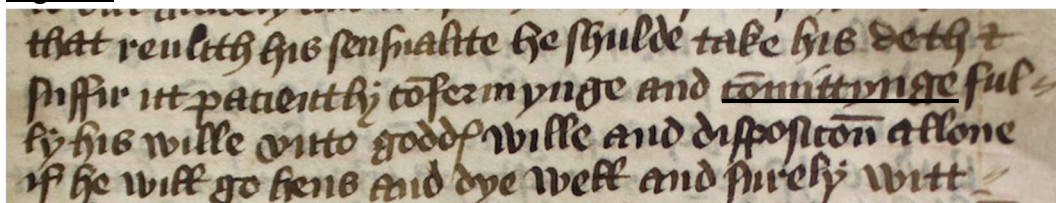 that reulith his sensualite he shulde take his deth ⁊
suffir itt paciently cōfermynge and cōmittynge ful=
ly his wille vnto goddꝭ wille and disposicōn allone
if he will go hens and dye well and surely witt=